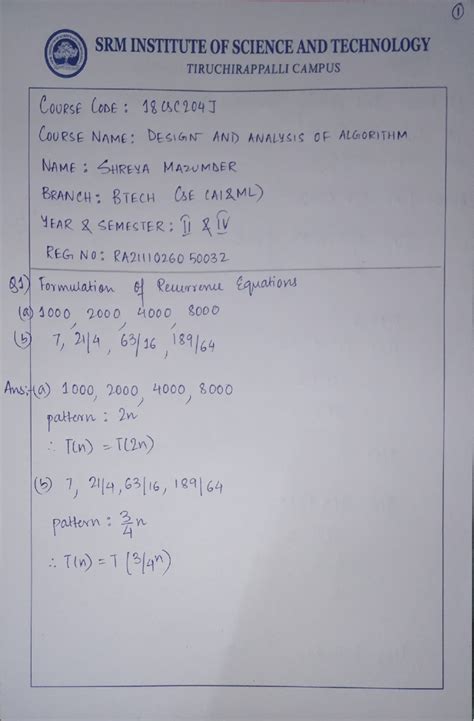 1
SRM INSTITUTE OF SCIENCE AND TECHNOLOGY
TIRUCHIRAPPALLI CAMPUS
COURSE CODE : 18CSC204J
COURSE NAME: DESIGN AND ANALYSIS OF ALGORITHM
NAME : SHREYA MAZUMDER
BRANCH: BTECH CSE (AI&ML)
YEAR & SEMESTER : II & IV
REG NO: RA2111026050032
Q1) Formulation of Recurrence Equations
(a) 1000, 2000, 4000, 8000
(b) 7, 21/4, 63/16, 189/64
Ans:-(a) 1000, 2000, 4000, 8000
pattern : 2n
∴ T(n) = T(2n)
(b) 7, 21/4, 63/16, 189/64
pattern : 3/4 n
∴ T(n) = T(3/4n)